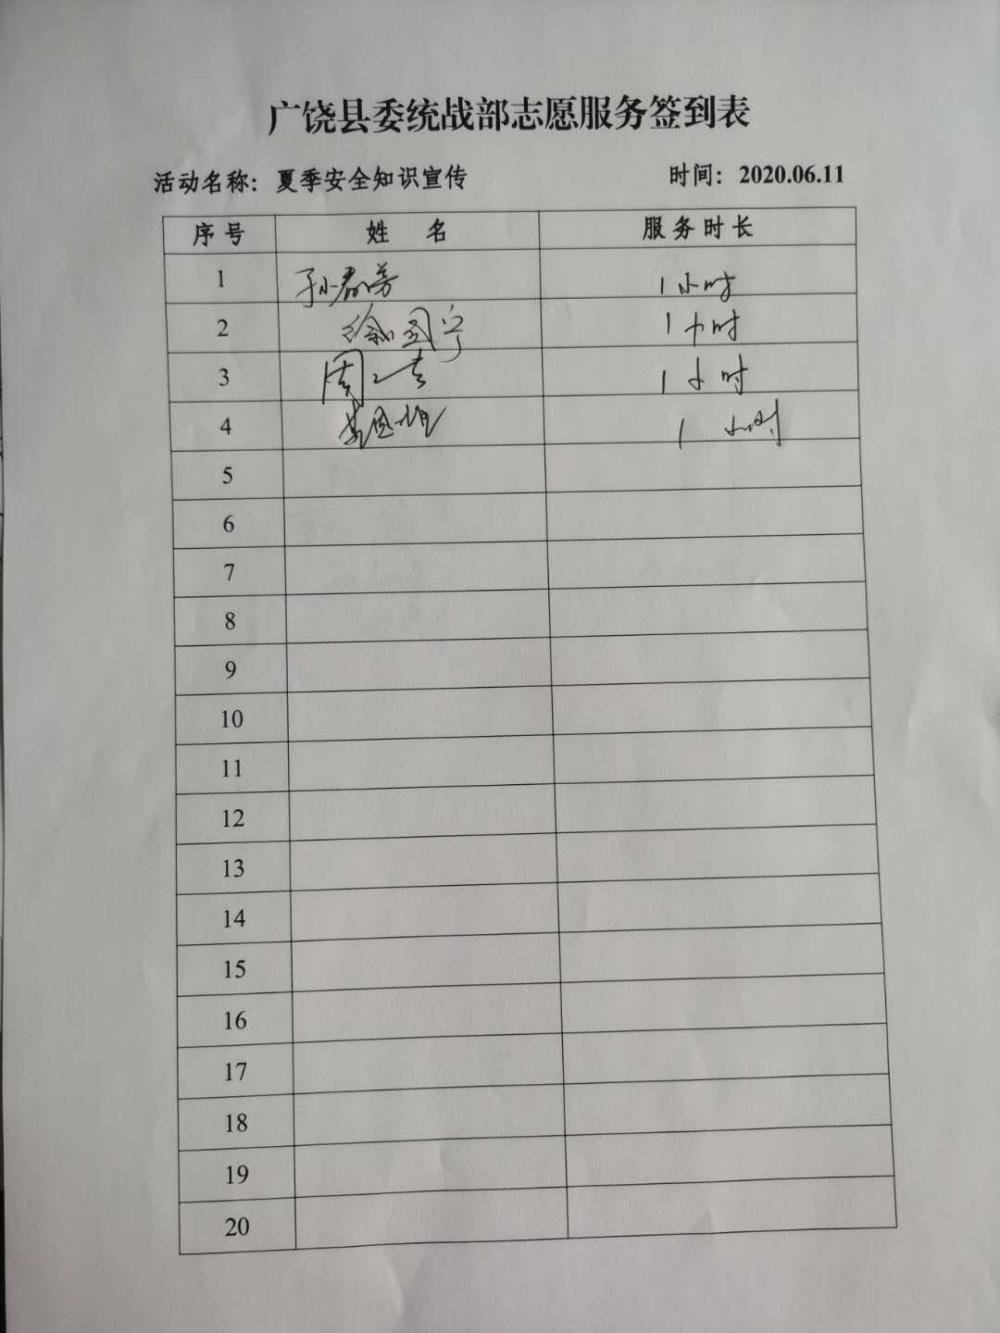 广饶县委统战部志愿服务签到表
活动名称：夏季安全知识宣传 时间：2020.06.11
序号 姓 名 服务时长
1 孙春芳 1小时
2 徐国宁 1小时
3 周 1小时
4 1小时
5
6
7
8
9
10
11
12
13
14
15
16
17
18
19
20